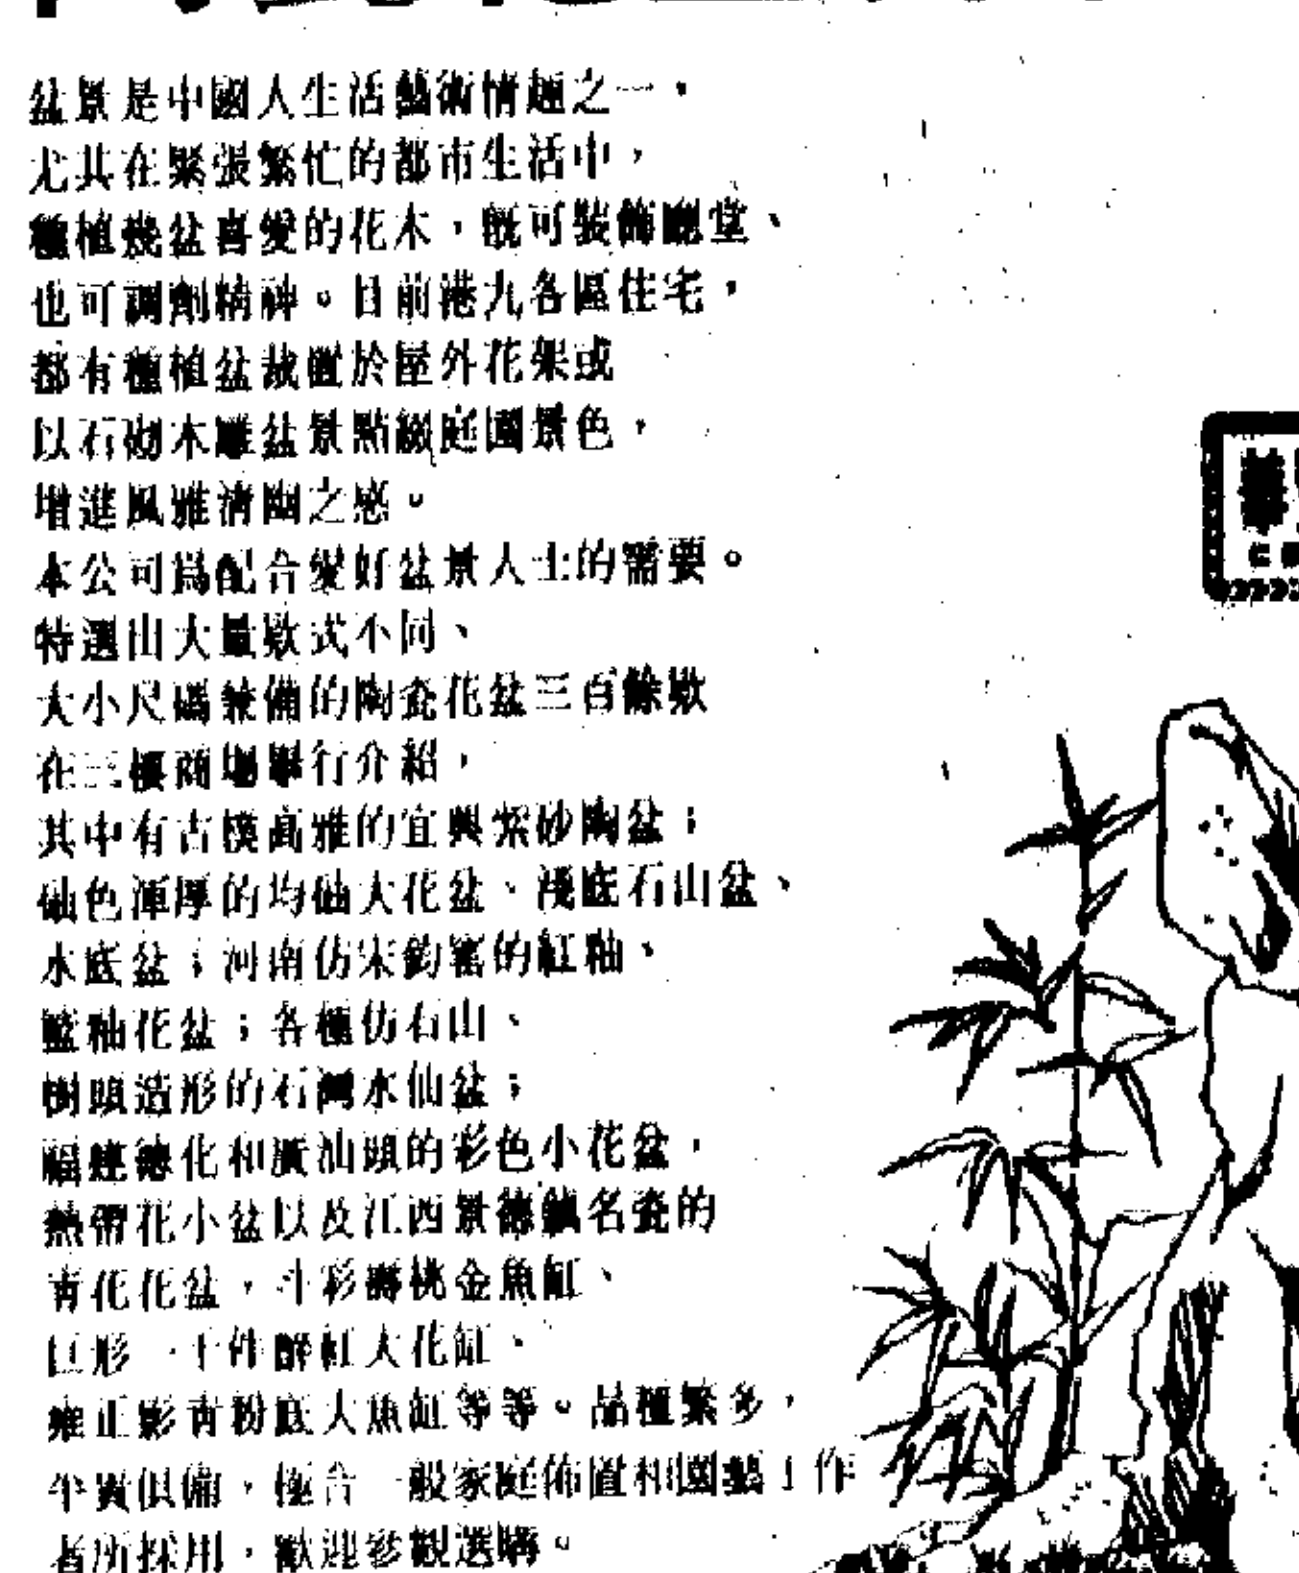 盆景是中國人生活藝術情趣之一，
尤其在緊張繁忙的都市生活中，
種植幾盆喜愛的花木，既可裝飾廳堂、
也可調劑精神。目前港九各區住宅，
都有種植盆栽置於屋外花架或
以石砌木雕盆景點綴庭園景色，
增進風雅清幽之感。
本公司爲配合愛好盆景人士的需要。
特選出大量欵式不同、
大小尺碼兼備的陶瓷花盆三百餘欵
在三樓商場舉行介紹，
其中有古樸高雅的宜興紫砂陶盆；
釉色渾厚的均釉大花盆、淺底石山盆、
水底盆；河南仿宋鈞窰的紅釉、
藍釉花盆；各種仿石山、
樹頭造形的石灣水仙盆；
福建德化和廣汕頭的彩色小花盆，
熱帶花小盆以及江西景德鎮名瓷的
青花花盆，斗彩壽桃金魚缸、
巨形一千件醉紅大花缸、
雍正影青粉底大魚缸等等。品種繁多，
平實俱備，極合一般家庭佈置和園藝工作
者所採用，歡迎參觀選購。